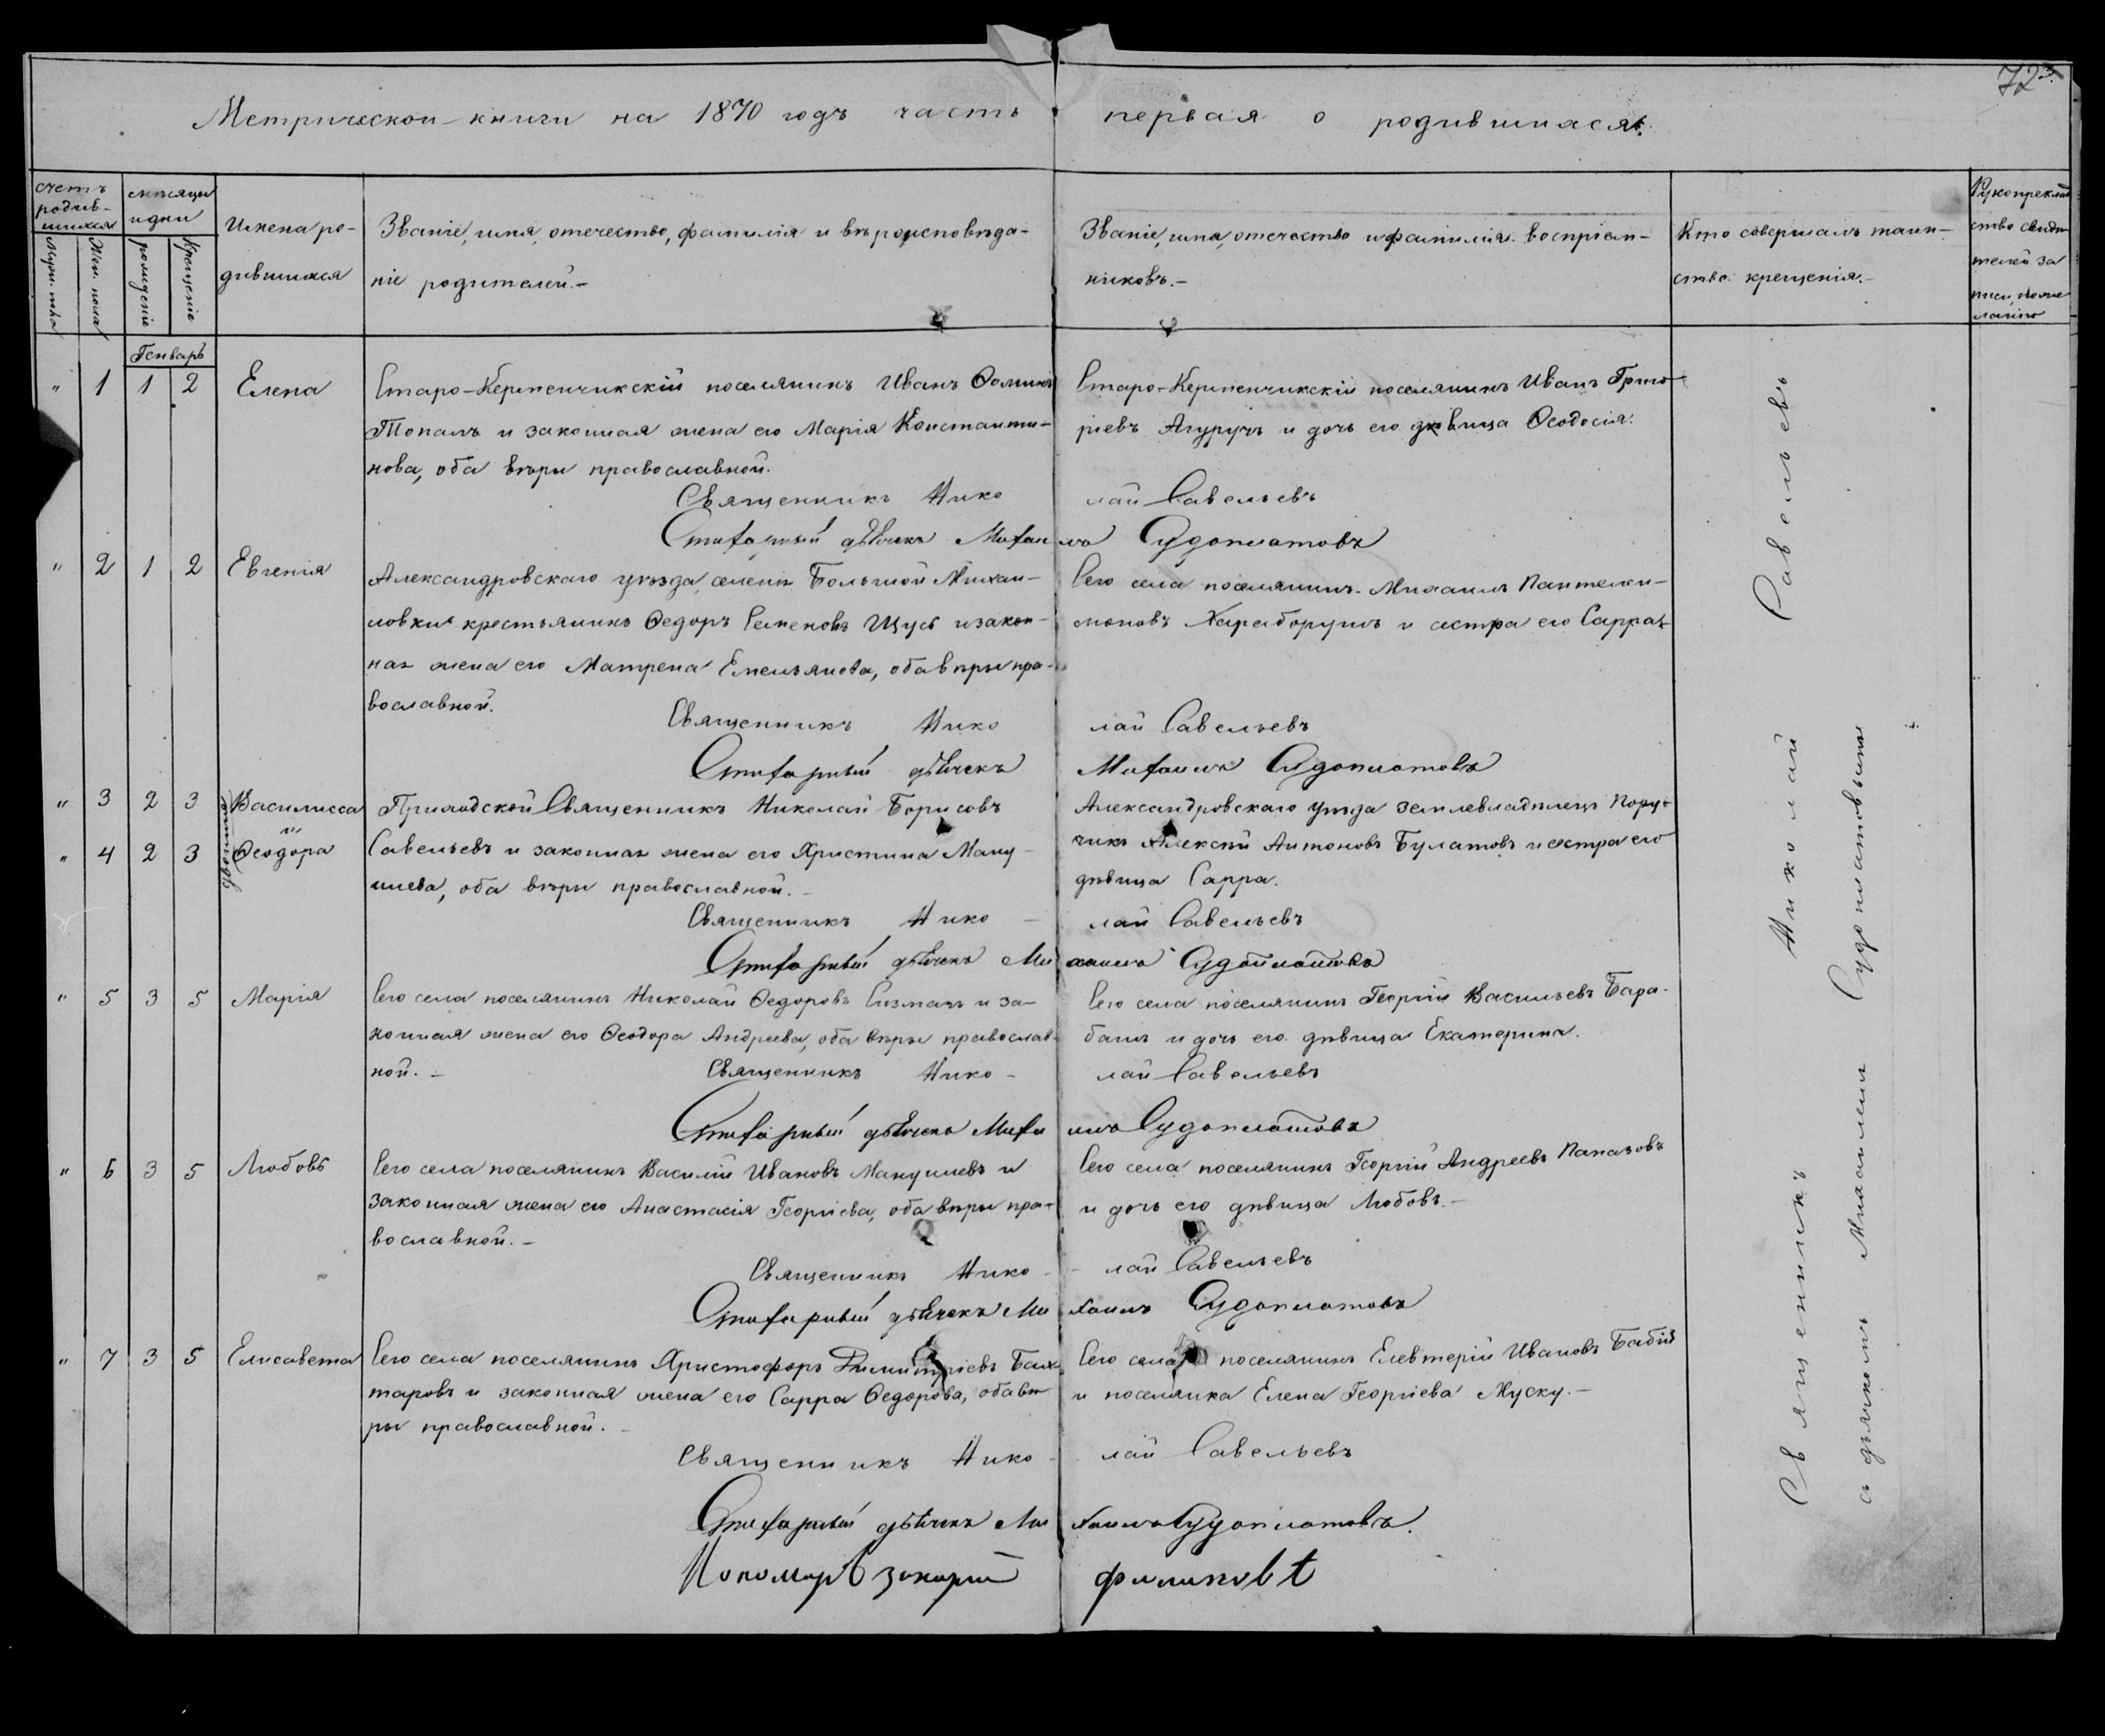 72
Метрической книги на 1870 годъ часть первая о родившихся.
счетъ родив-шихся
мѣсяцы и дни
Имена ро-дившихся
Званіе, имя, отечество, фамилія и вѣроисповѣда-
ніе родителей.-
Званіе, имя, отечество и фамилія воспріем-
никовъ.-
Кто совершалъ таин-
ство крещенія.-
Муж. пола
Жен. пола
рожденіе
крещеніе
Генварь
" 1 1 2 Елена
Старо-Керменчикскій поселянинъ Иванъ Ѳоминъ
Топалъ и законная жена его Марія Константи-
нова, оба вѣры православной.
Старо-Керменчикскій поселянинъ Иванъ Григо-
ріевъ Агуручъ и дочь его дѣвица Ѳеодосія.
Священникъ Николай Савельевъ
Стихарный дьячекъ Михаилъ Судоплатовъ
" 2 1 2 Евгенія
Александровскаго уѣзда, селенія Большой Михаи-
ловки крестьянинъ Ѳедоръ Семеновъ Щусь и закон-
ная жена его Матрена Емельянова, оба вѣры пра-
вославной.
Сего села поселянинъ Михаилъ Пантелеи-
моновъ Хараборушъ и сестра его Сарра
Священникъ Николай Савельевъ
Стихарный дьячекъ Михаилъ Судоплатовъ
" 3 2 3 Василисса
и
" 4 2 3 Ѳеодора
Приходской Священникъ Николай Борисовъ
Савельевъ и законная жена его Христина Ману-
шева, оба вѣры православной.-
Александровскаго уѣзда землевладѣлецъ Пору-
чикъ Алексѣй Антоновъ Булатовъ и сестра его
дѣвица Сарра.
Священникъ Николай Савельевъ
Стихарный дьячекъ Михаилъ Судоплатовъ
" 5 3 5 Марія
Сего села поселянинъ Николай Ѳедоровъ Сизмачъ и за-
конная жена его Ѳеодора Андреева, оба вѣры православ-
ной.-
Сего села поселянинъ Георгій Васильевъ Бара-
башъ и дочь его дѣвица Екатерина.
Священникъ Николай Савельевъ
Стихарный дьячекъ Михаилъ Судоплатовъ
" 6 3 5 Любовь
Сего села поселянинъ Василій Ивановъ Манушевъ и
законная жена его Анастасія Георгіева, оба вѣры пра-
вославной.-
Сего села поселянинъ Георгій Андреевъ Папазовъ
и дочь его дѣвица Любовь.-
Священникъ Николай Савельевъ
Стихарный дьячекъ Михаилъ Судоплатовъ
" 7 3 5 Елисавета
Сего села поселянинъ Христофоръ Димитріевъ Бах-
таровъ и законная жена его Сарра Ѳедорова, оба вѣ-
ры православной.-
Сего села поселянинъ Елевтерій Ивановъ Бабій
и поселянка Елена Георгіева Муску.-
Священникъ Николай Савельевъ
Стихарный дьячекъ Михаилъ Судоплатовъ.
Пономарь Захарій Филиповъ
Священникъ Николай Савельевъ
съ дьячкомъ Михаиломъ Судоплатовымъ